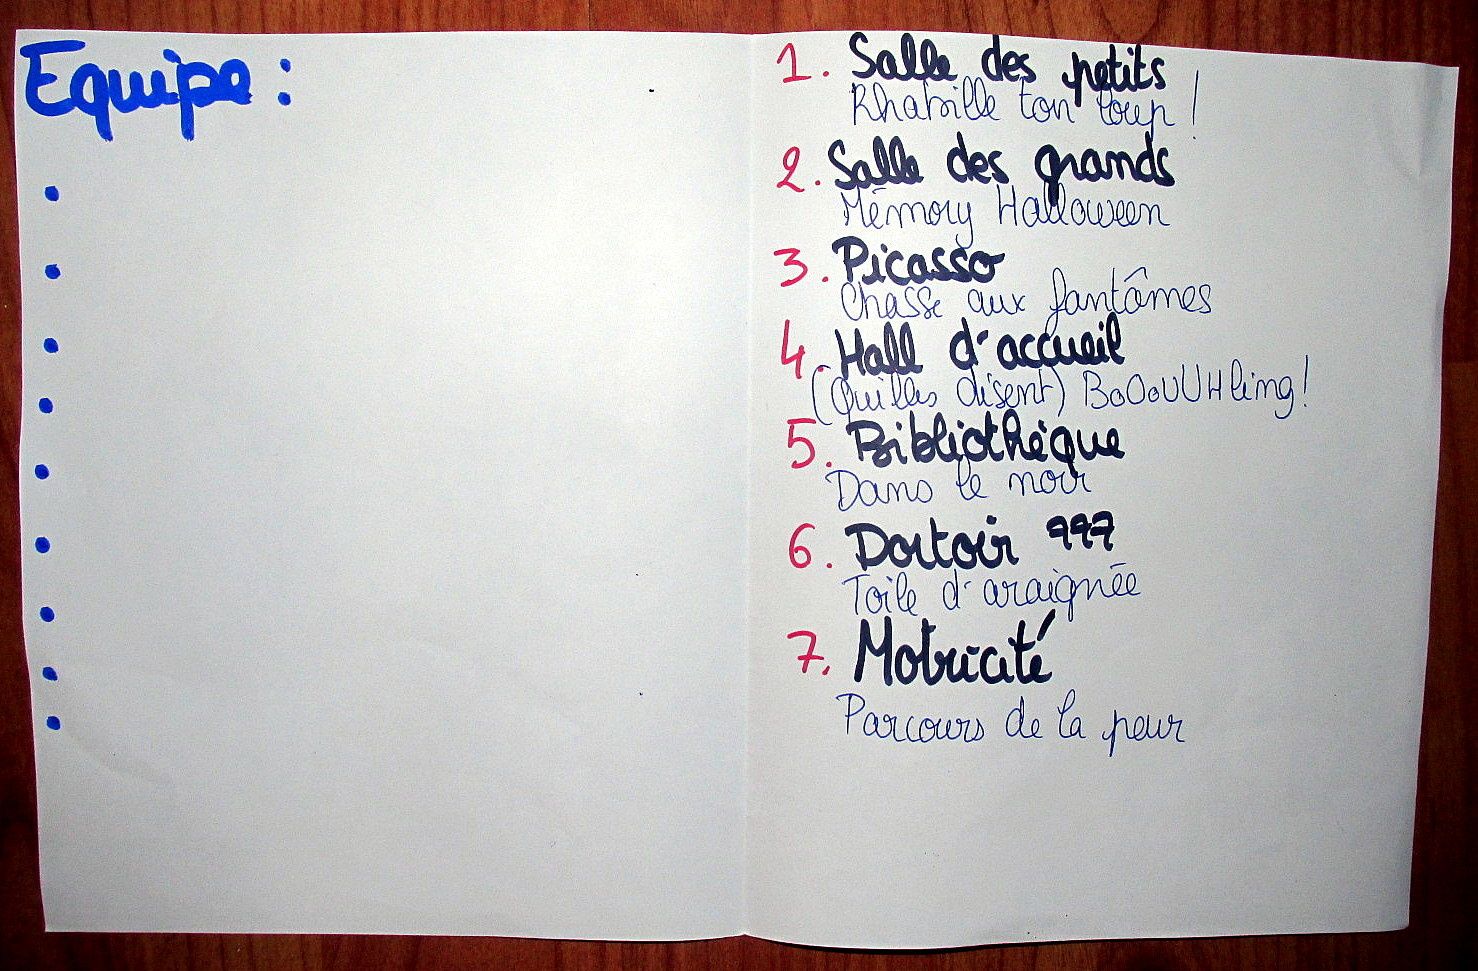 Equipe :
1. Salle des petits
Rhabille ton loup !
2. Salle des grands
Mémory Halloween
3. Picasso
Chasse aux fantômes
4. Hall d'accueil
(Quilles disent) BoOoUUHling !
5. Bibliothèque
Dans le noir
6. Dortoir 777
Toile d'araignée
7. Motricité
Parcours de la peur